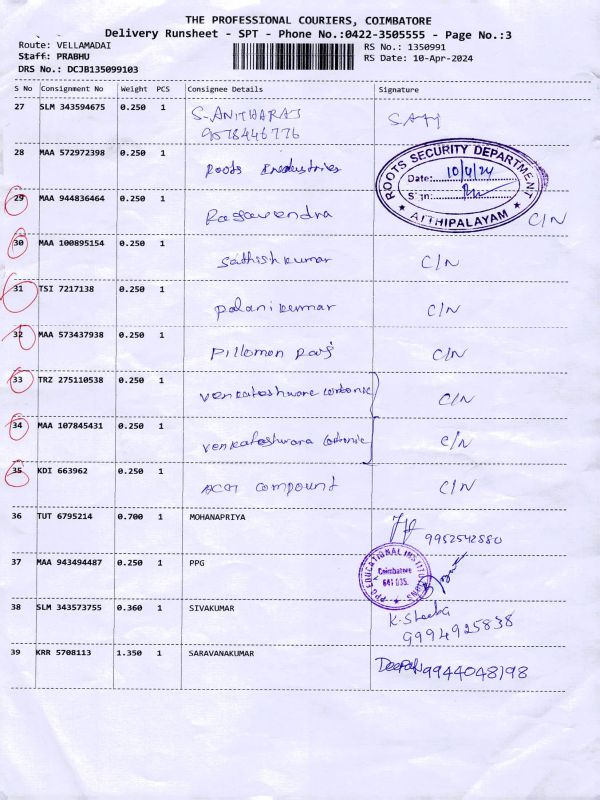 THE PROFESSIONAL COURIERS, COIMBATORE
Delivery Runsheet - SPT - Phone No.:0422-3505555 - Page No.:3
Route: VELLAMADAI RS No.: 1350991
Staff: PRABHU RS Date: 10-Apr-2024
DRS No.: DCJB135099103
S No Consignment No Weight PCS Consignee Details Signature
27 SLM 343594675 0.250 1 S. ANITHARAJ
9578446776
28 MAA 572972398 0.250 1 Roots Industries
ROOTS SECURITY DEPARTMENT
Date: 10/4/24
Sign:
AITHIPALAYAM
29 MAA 944836464 0.250 1 Ragavendra C/N
30 MAA 100895154 0.250 1 Sathish kumar C/N
31 TSI 7217138 0.250 1 Palani kumar C/N
32 MAA 573437938 0.250 1 Pillomon Raj C/N
33 TRZ 275110538 0.250 1 Venkateshwara C/N
34 MAA 107845431 0.250 1 Venkateshwara C/N
35 KDI 663962 0.250 1 compount C/N
36 TUT 6795214 0.700 1 MOHANAPRIYA 9952542880
37 MAA 943494487 0.250 1 PPG
PPG EDUCATIONAL INSTITUTIONS
Coimbatore
641 035.
38 SLM 343573755 0.360 1 SIVAKUMAR K. Sheeba
9994925838
39 KRR 5708113 1.350 1 SARAVANAKUMAR Deepak 9944048198